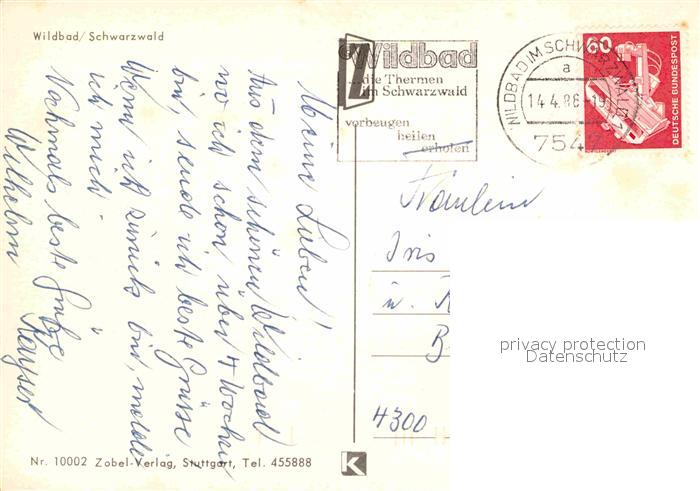 Wildbad/Schwarzwald
Meine Lieben!
Aus dem schönen Wildbad
wo ich schon über 4 Wochen
bin, sende ich beste Grüsse
Wenn ich zurück bin, melde
ich mich.
Nochmals beste Grüße
Wilhelm Kayser
Wildbad
die Thermen
im Schwarzwald
vorbeugen
heilen
erholen
WILDBAD IM SCHWARZWALD
a
14.4.86-19
7547
60
DEUTSCHE BUNDESPOST
Fräulein
Iris
u.
B
4300
privacy protection
Datenschutz
Nr. 10002 Zobel-Verlag, Stuttgart, Tel. 455888
K